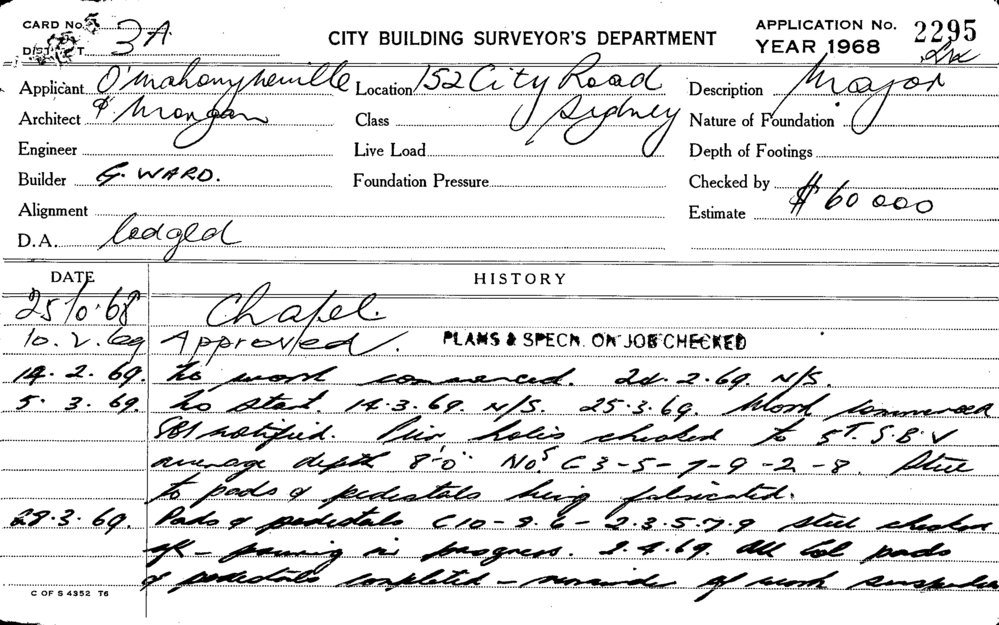 CARD No. 5
CITY BUILDING SURVEYOR'S DEPARTMENT
APPLICATION No. 2295
DISTRICT 3A
YEAR 1968
Applicant O'Mahony Neville
Location 152 City Road
Description Major
Architect & Morgan
Class Sydney
Nature of Foundation
Engineer
Live Load
Depth of Footings
Builder G. WARD.
Foundation Pressure
Checked by
Alignment
Estimate $60000
D.A. lodged
DATE HISTORY
25/10.68 Chapel.
10.2.69 Approved. PLANS & SPECN. ON JOB CHECKED
14.2.69. No work commenced. 24.2.69. N/S.
5.3.69. No start. 14.3.69. N/S. 25.3.69. Work commenced
SBI notified. Pier holes checked to
average depth 8'-0" Nos C3-5-7-9-2-8. Steel
to pads & pedestals being fabricated.
28.3.69. Pads & pedestals C10-8.6-2.3.5.7.9 steel checked
OK - pouring in progress. 3.4.69. All Col pads
& pedestals completed - remainder of work suspended
C OF S 4352 T6